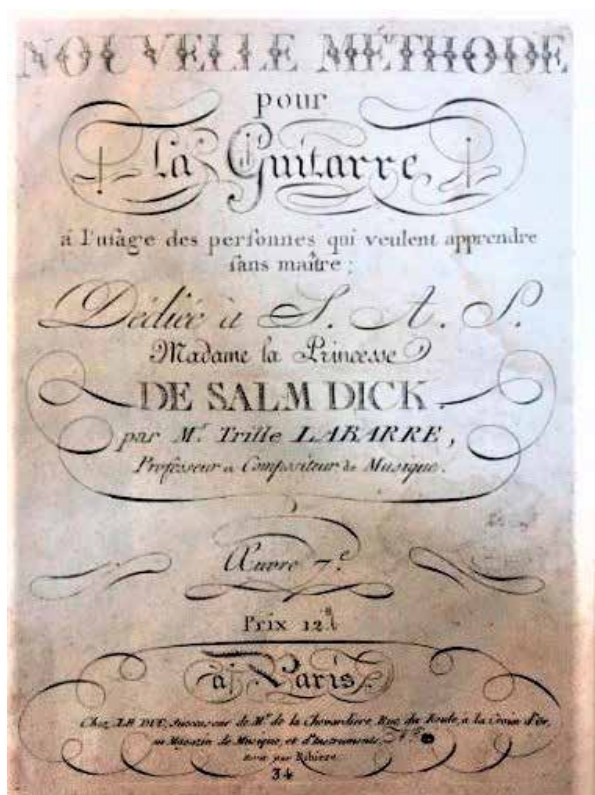 NOUVELLE MÉTHODE
pour
La Guitarre
á l'uſage des perſonnes qui veulent apprendre
ſans maître ;
Dédiée à S. A. S.
Madame la Princesse
DE SALM DICK.
par Mr. Trille LABARRE,
Professeur et Compositeur de Musique.
Œuvre 7e.
Prix 12
à Paris
Chez LE DUC, Successeur de Mr. de la Chevardiere, Rue du Roule, à la Croix d'Or,
au Magazin de Musique, et d'Instruments,
Ecrit par Ribiere
34